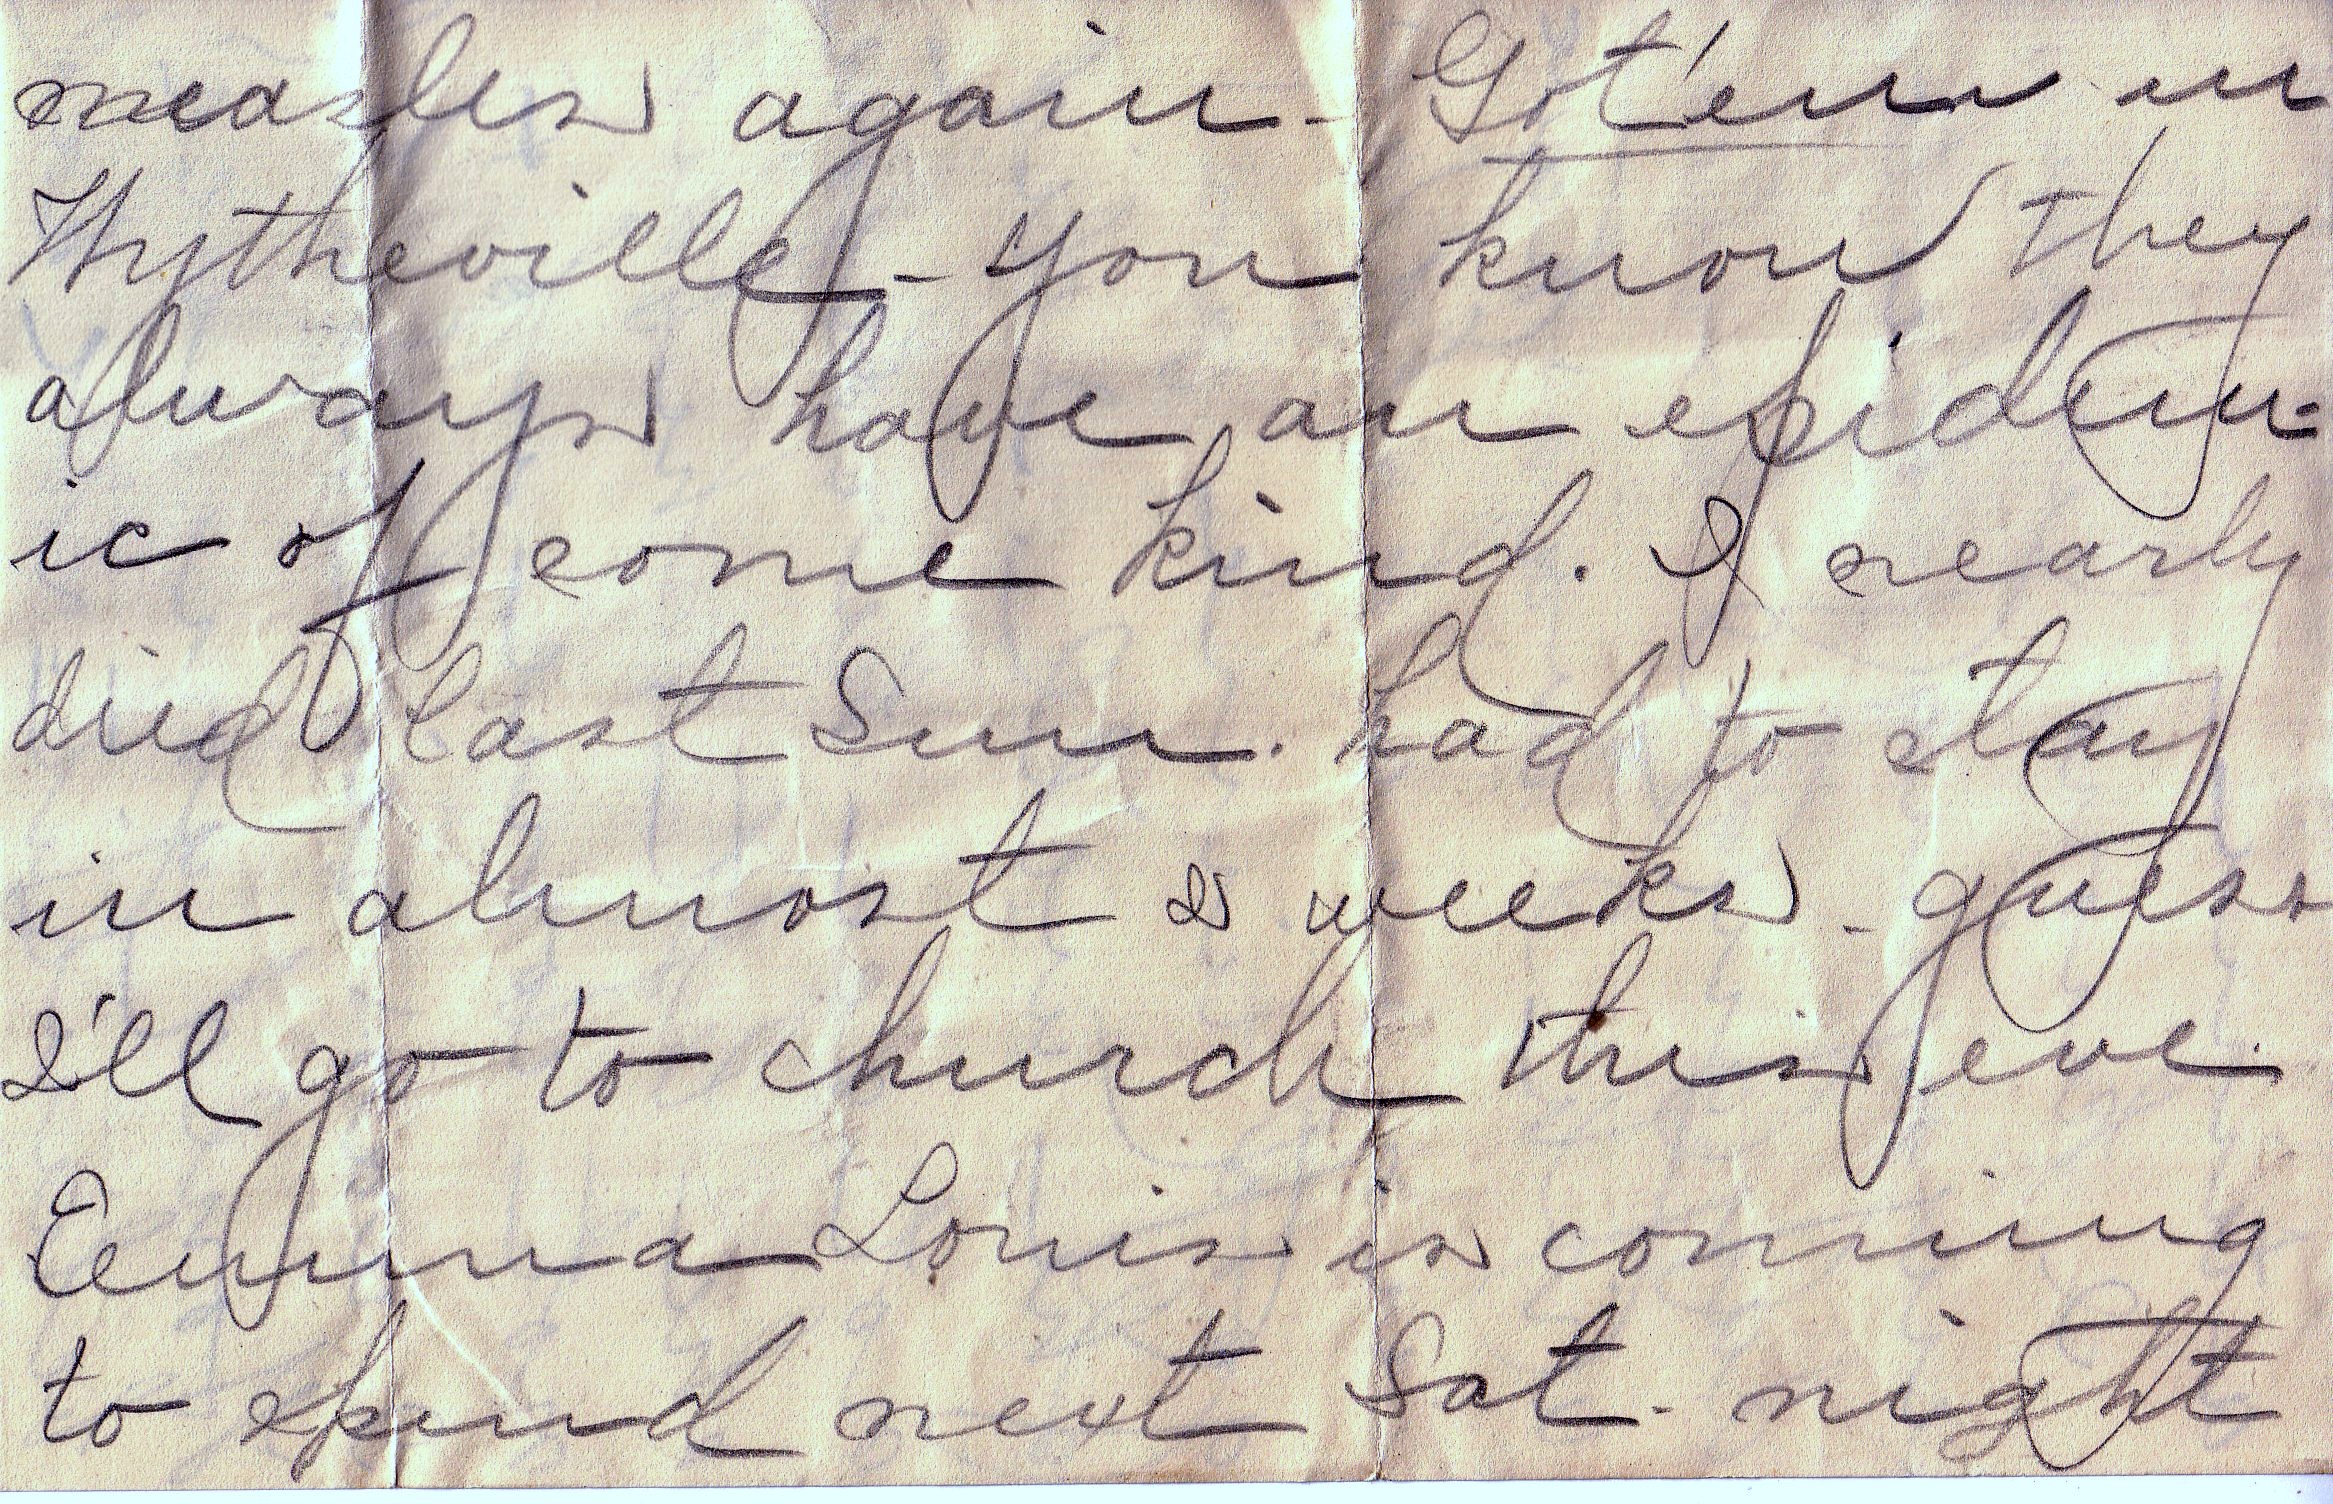 measles again - Got 'em in
Wytheville - you know they
always have an epidem=
ic of some kind. I nearly
died last Sun. had to stay
in almost 2 weeks - guess
I'll go to church this eve.
Emma Louis is coming
to spend next Sat. night